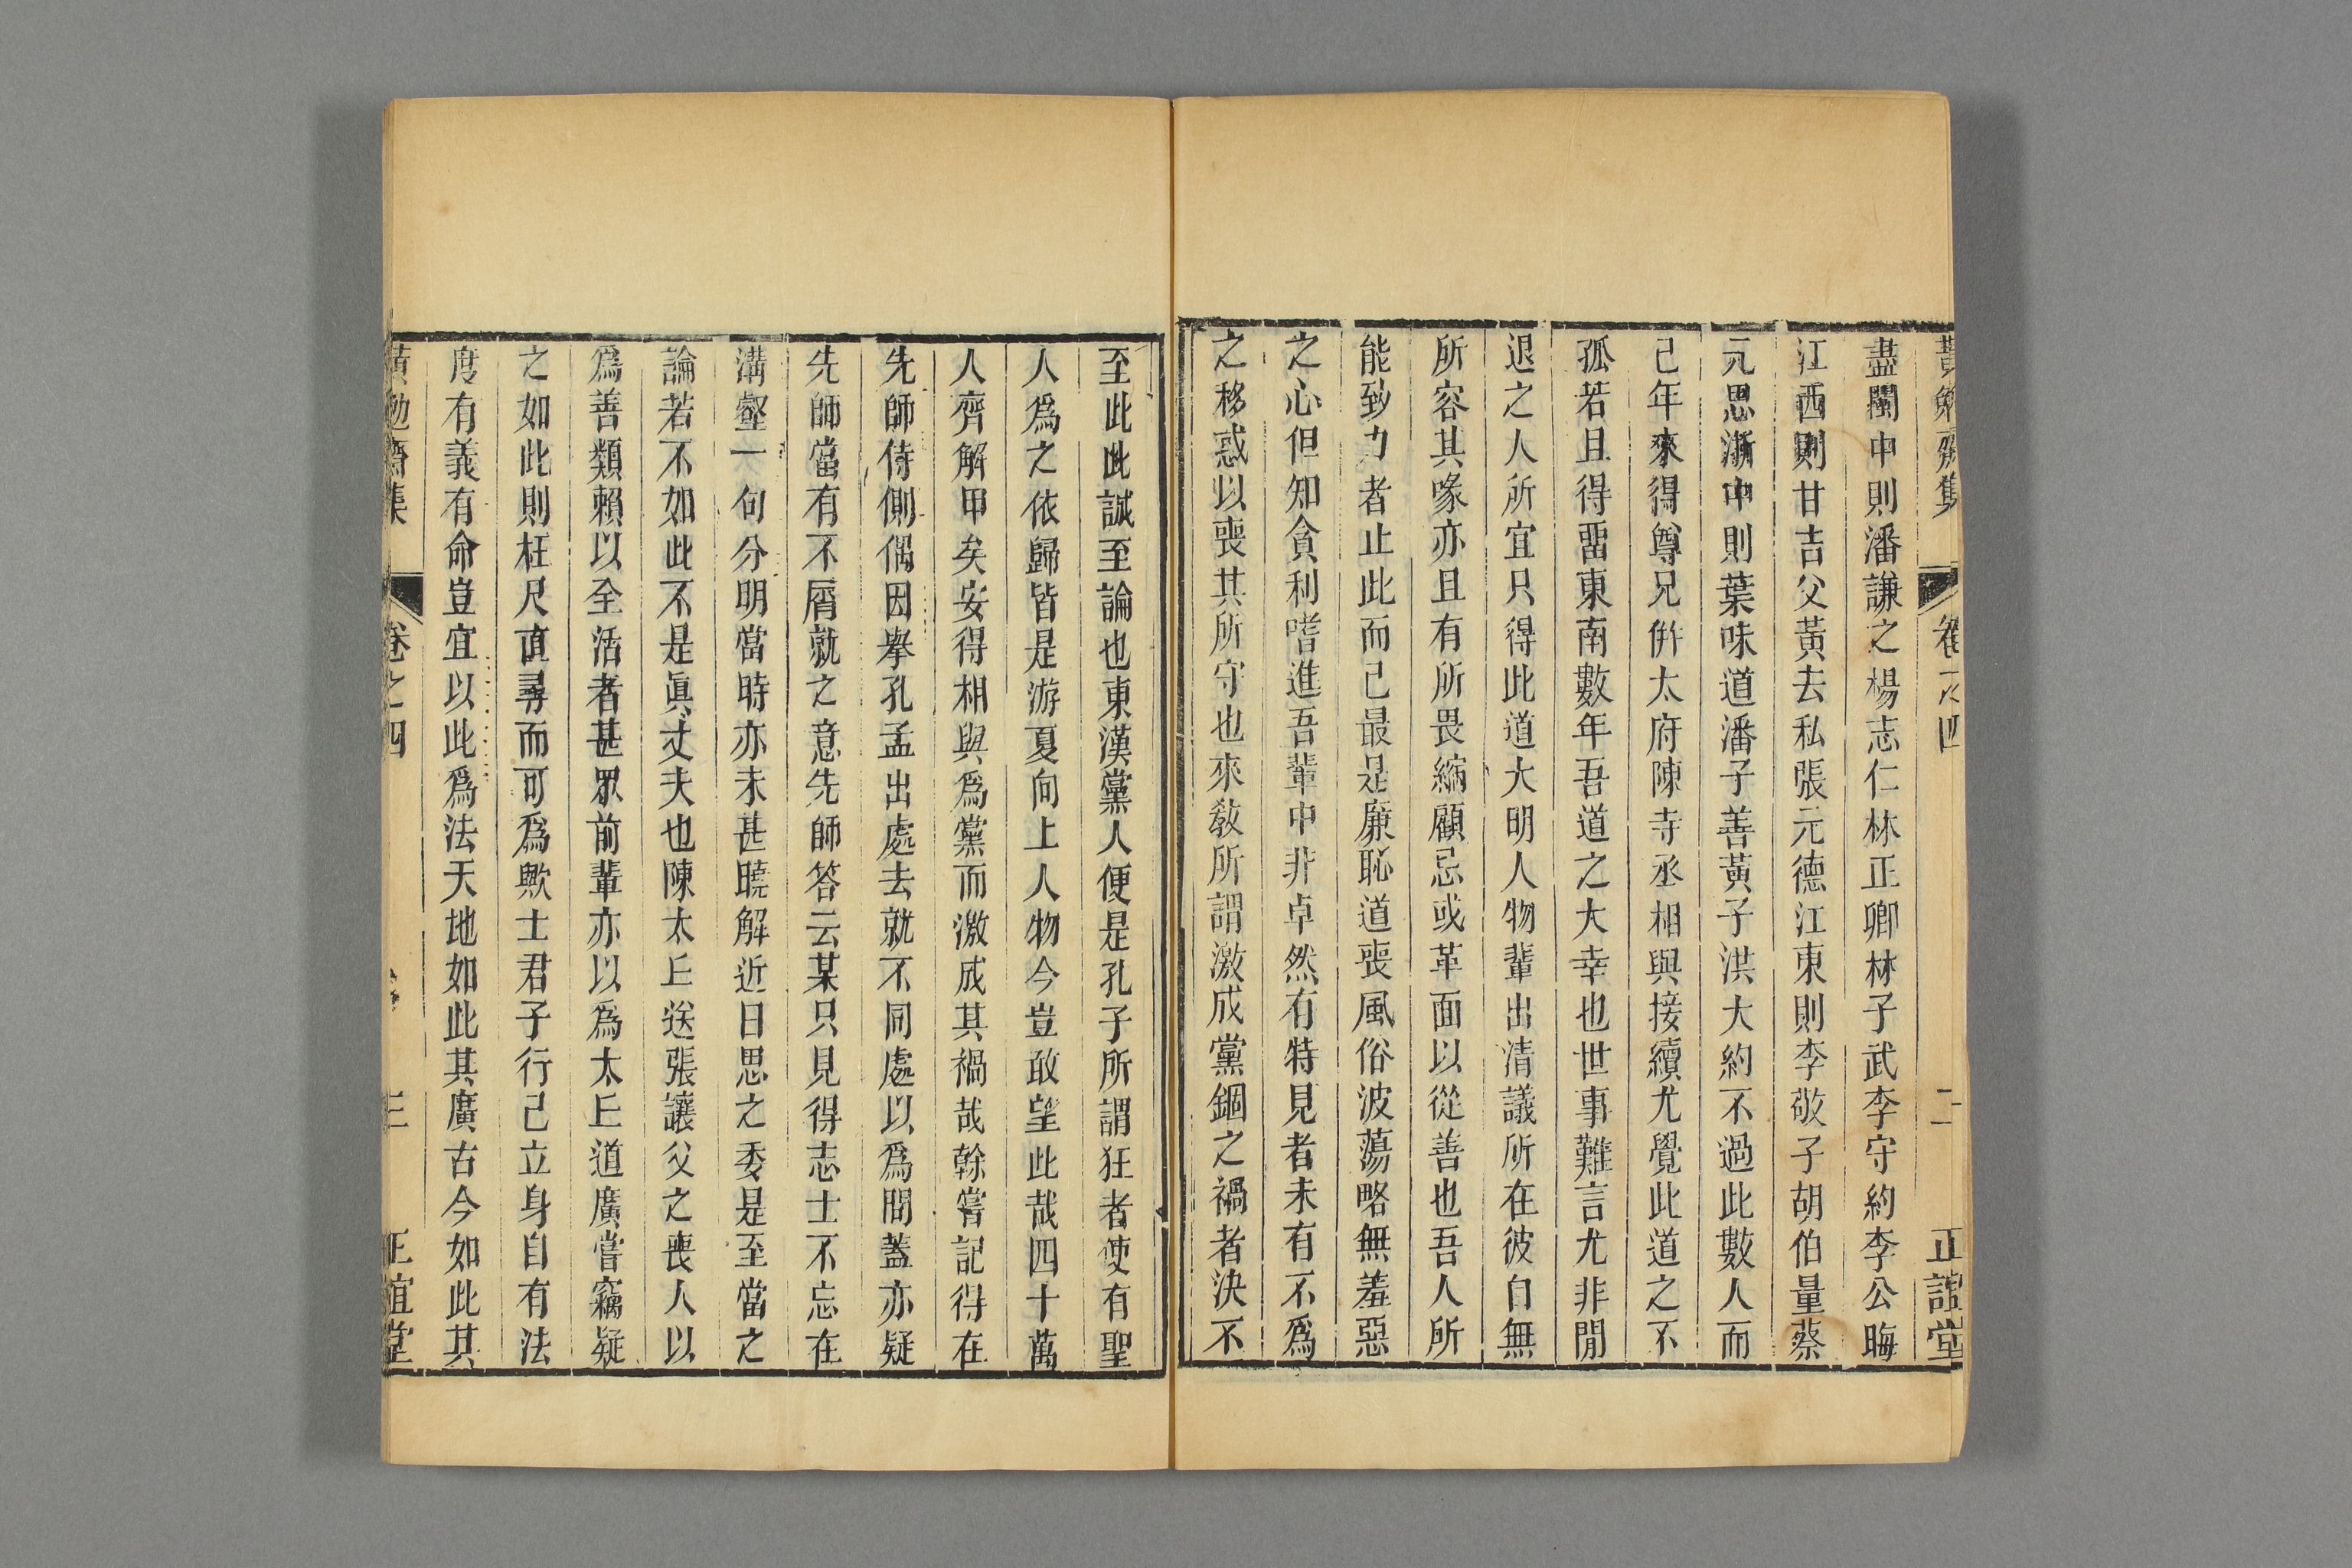 黃勉齋集 卷之四 二 正誼堂
盡閩中則潘謙之楊志仁林正卿林子武李守約李公晦
江西則甘吉父黃去私張元德江東則李敬子胡伯量蔡
元思浙中則葉味道潘子善黃子洪大約不過此數人而
己年來得尊兄倂太府陳寺丞相與接續尤覺此道之不
孤若且得畱東南數年吾道之大幸也世事難言尤非閒
退之人所宜只得此道大明人物輩出清議所在彼自無
所容其喙亦且有所畏縮顧忌或革面以從善也吾人所
能致力者止此而己最是廉恥道喪風俗波蕩略無羞惡
之心但知貪利嗜進吾輩中非卓然有特見者未有不爲
之移惑以喪其所守也來敎所謂激成黨錮之禍者決不
至此此誠至論也東漢黨人便是孔子所謂狂者使有聖
人爲之依歸皆是游夏向上人物今豈敢望此哉四十萬
人齊解甲矣安得相與爲黨而激成其禍哉榦嘗記得在
先師侍側偶因舉孔孟出處去就不同處以爲問蓋亦疑
先師當有不屑就之意先師答云某只見得志士不忘在
溝壑一句分明當時亦未甚曉解近日思之委是至當之
論若不如此不是眞丈夫也陳太丘送張讓父之喪人以
爲善類賴以全活者甚眾前輩亦以爲太丘道廣嘗竊疑
之如此則枉尺直尋而可爲歟士君子行己立身自有法
度有義有命豈宜以此爲法天地如此其廣古今如此其
黃勉齋集 卷之四 三 正誼堂